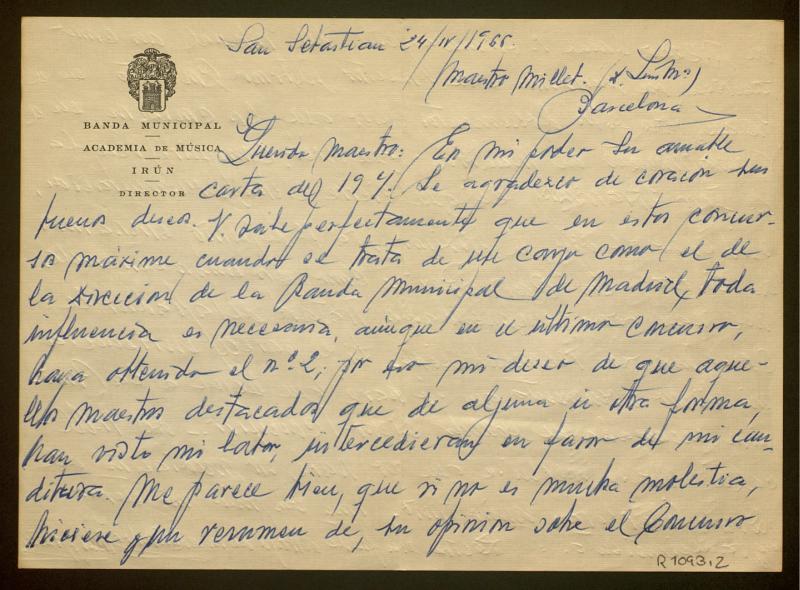 San Sebastian 24/IV/1966.
Maestro Millet. (D. Luis Mª)
Barcelona
BANDA MUNICIPAL
ACADEMIA DE MÚSICA
IRÚN
DIRECTOR
Querido maestro: En mi poder su amable
carta del 19 Le agradezco de corazón sus
buenos deseos. V. sabe perfectamente que en estos concur-
sos máxime cuando se trata de un cargo como el de
la Dirección de la Banda Municipal de Madrid, toda
influencia es necesaria, aunque en el último concurso,
haya obtenido el nº 2; por eso mi deseo de que aque-
llos maestros destacados que de alguna u otra forma,
han visto mi labor, intercedieran en favor de mi can-
ditura. Me parece bien, que si no es mucha molestia,
hiciese un resumen de, su opinión sobre el Concurso
R 1093,2